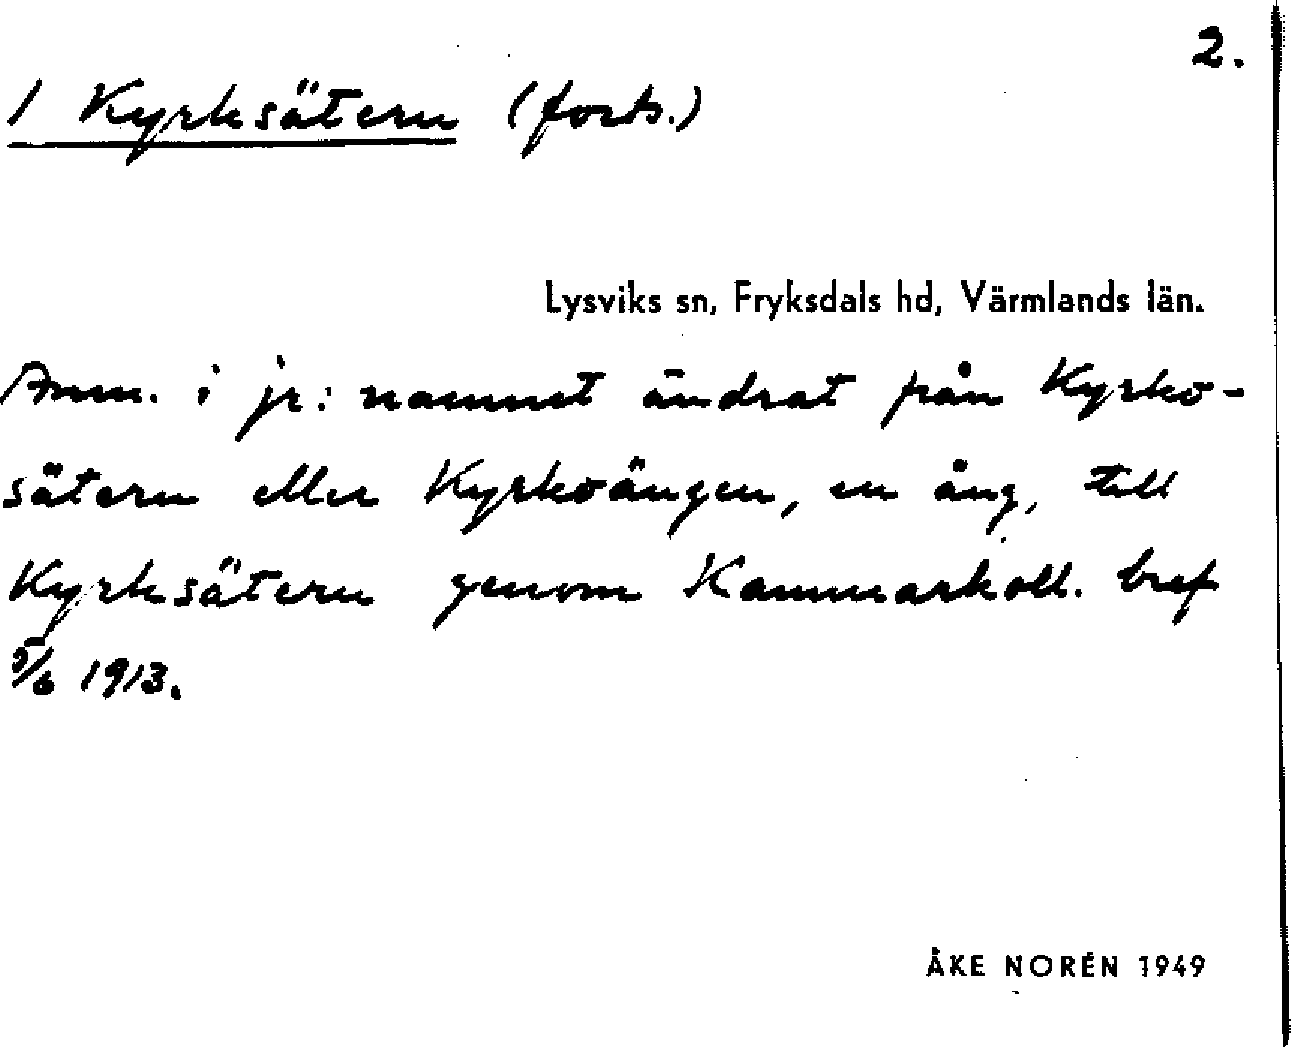 2.
/ Kyrksätern (forts.)
Lysviks sn, Fryksdals hd, Värmlands län.
Anm. i jr: namnet ändrat från Kyrko-
sätern eller Kyrkoängen, en äng, till
Kyrksätern genom Kammarkoll. bref
5/6 1913.
ÅKE NORÉN 1949